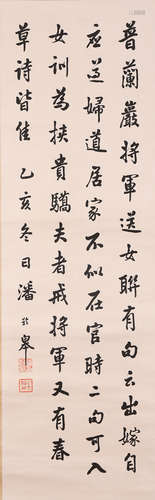 普蘭巖將軍送女聯有句云出嫁自
应遵婦道居家不似在官時二句可入
女訓為挾貴驕夫者戒將軍又有春
草詩皆佳乙亥冬日潘於皋